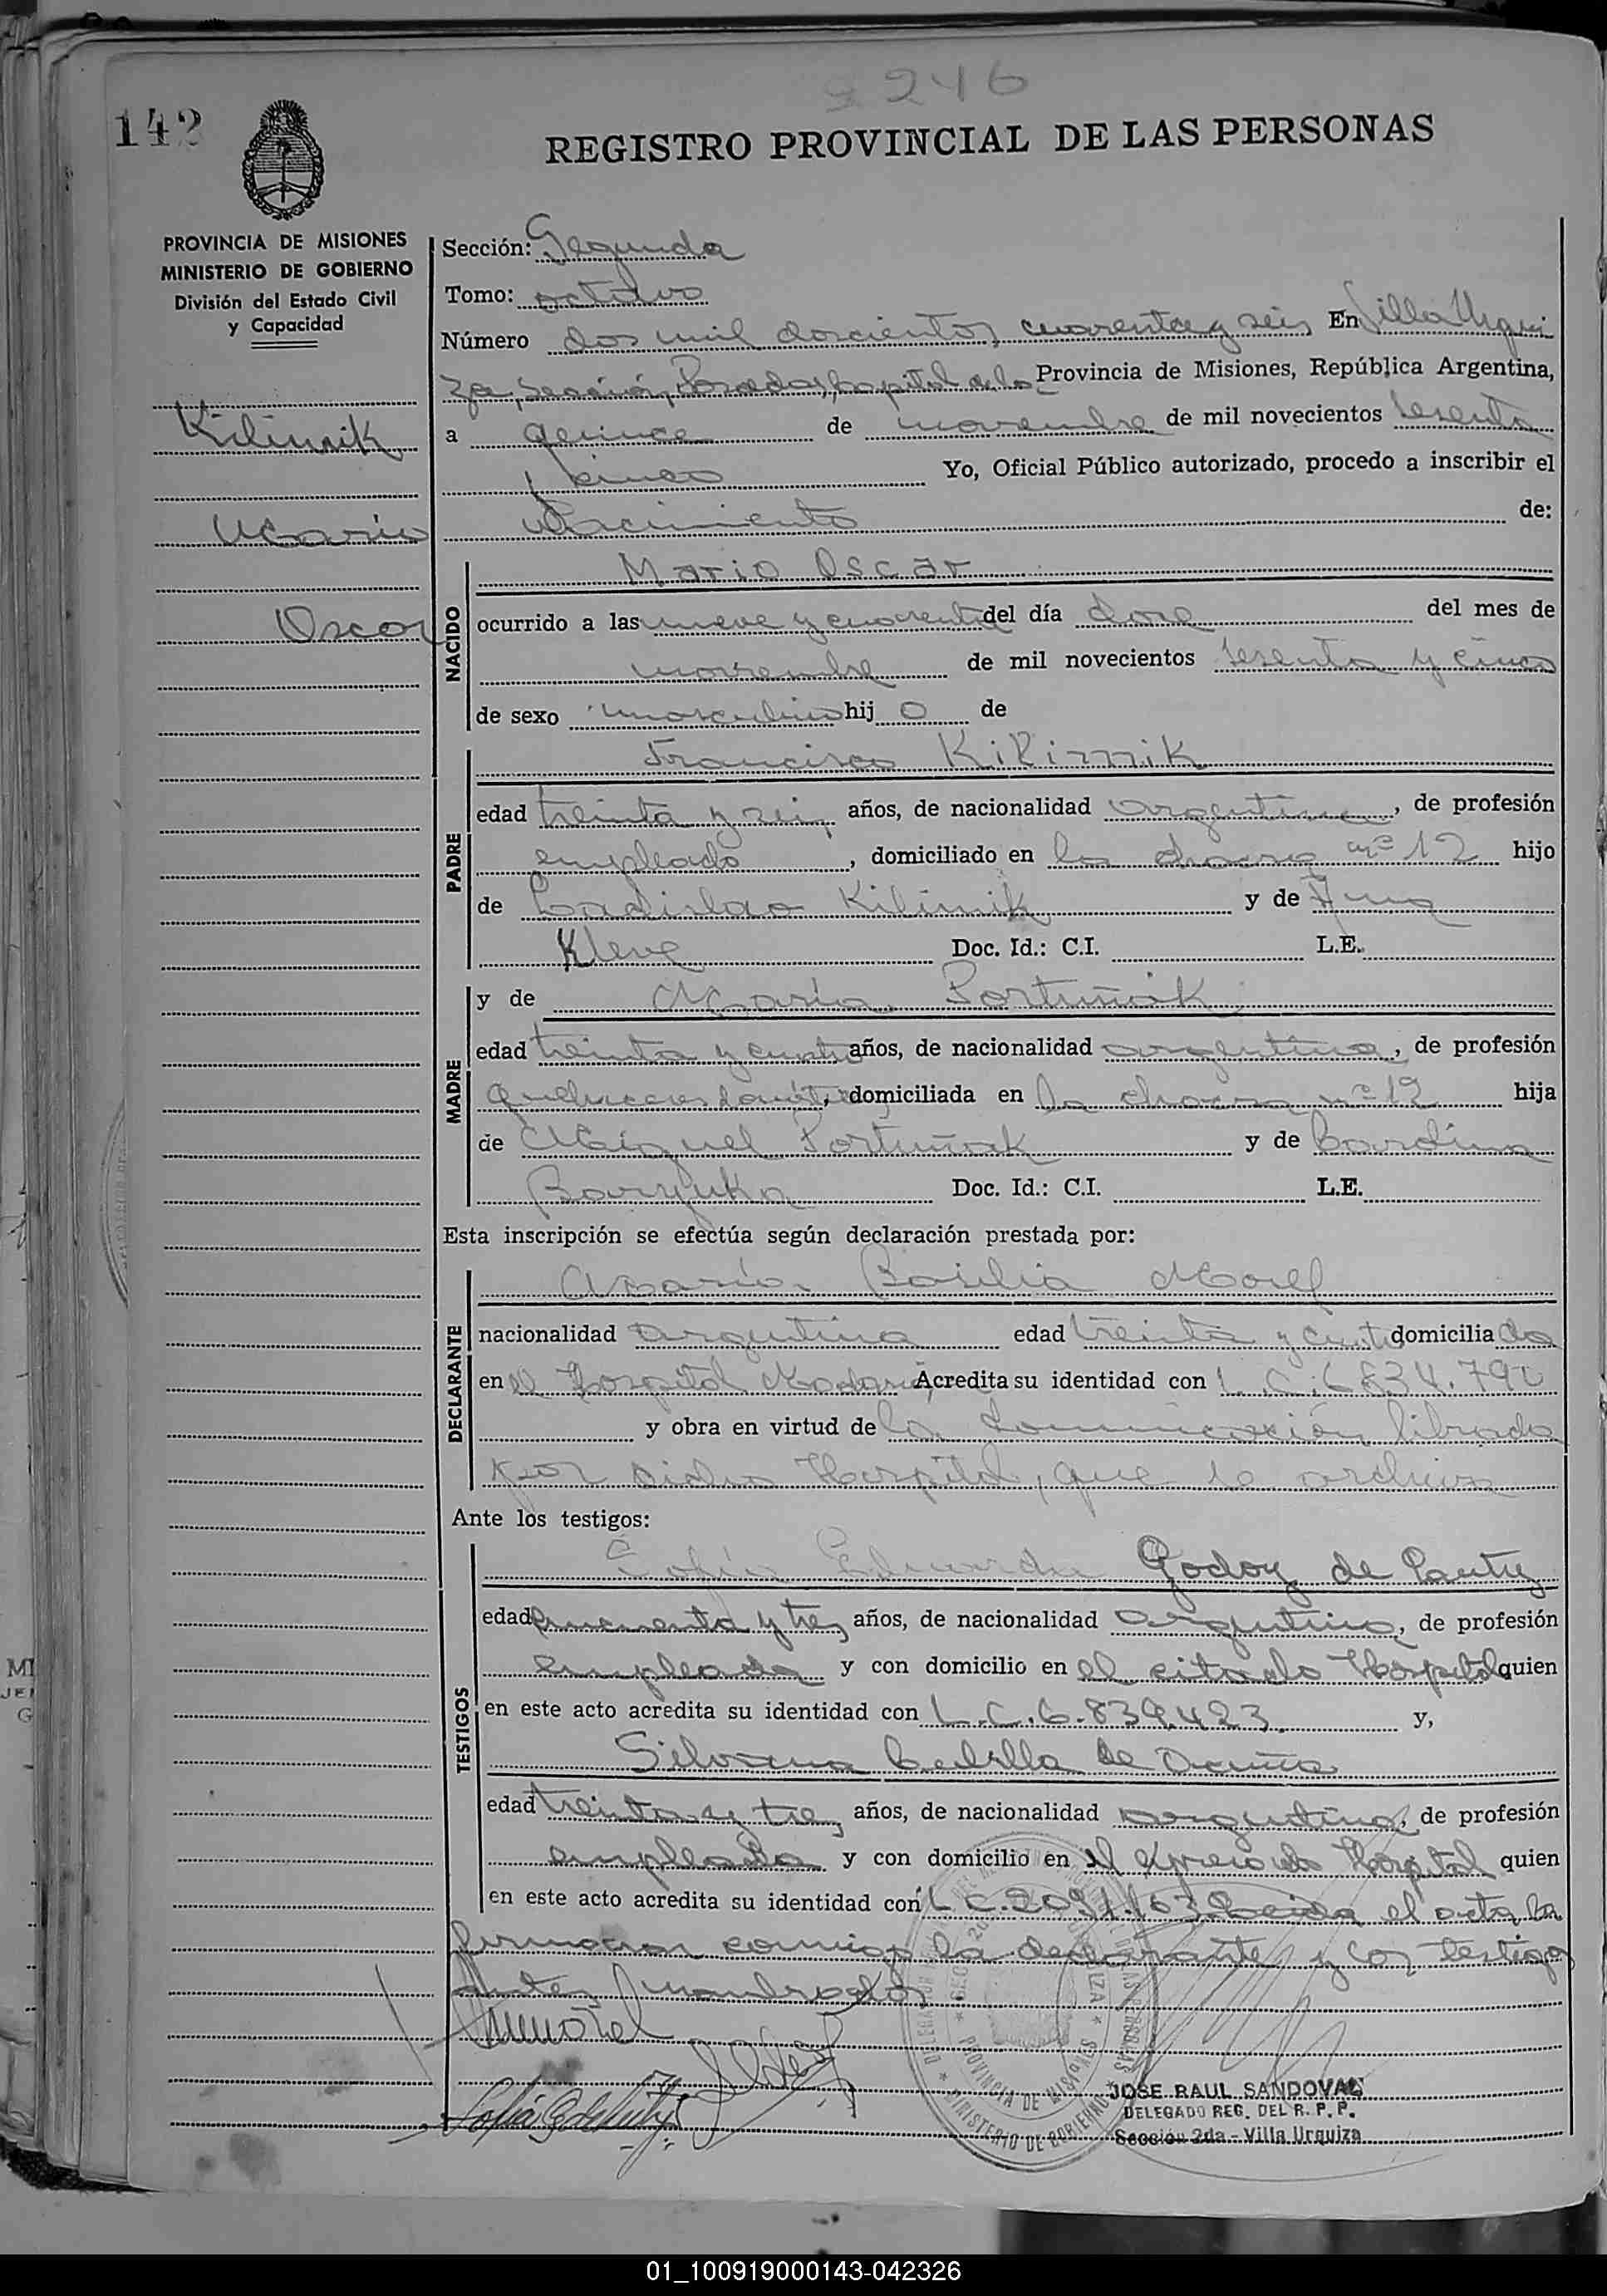 2246
142
REGISTRO PROVINCIAL DE LAS PERSONAS
PROVINCIA DE MISIONES
MINISTERIO DE GOBIERNO
División del Estado Civil
y Capacidad
Kilinnik
Mario
Oscar
Sección: Segunda
Tomo: octavo
Número dos mil doscientos cuarenta y seis En Villa Urqui
za, Sección, Posadas, Capital de la Provincia de Misiones, República Argentina,
a quince de noviembre de mil novecientos sesenta
y cinco Yo, Oficial Público autorizado, procedo a inscribir el
Nacimiento de:
NACIDO
Mario Oscar
ocurrido a las nueve y cuarenta del día doce del mes de
noviembre de mil novecientos sesenta y cinco
de sexo masculino hijo de
PADRE
Francisco Kilinnik
edad treinta y seis años, de nacionalidad argentina, de profesión
empleado, domiciliado en la chacra nº 12 hijo
de Ladislao Kilinnik y de Ana
Kleve Doc. Id.: C.I. L.E.
MADRE
y de María Portuñak
edad treinta y cuatro años, de nacionalidad argentina, de profesión
quehaceres domésticos, domiciliada en la chacra nº 12 hija
de Miguel Portuñak y de
Doc. Id.: C.I. L.E.
Esta inscripción se efectúa según declaración prestada por:
DECLARANTE
María Basilia Morel
nacionalidad argentina edad treinta y domiciliada
en el Hospital Madariaga Acredita su identidad con L.C. 6.834.792
y obra en virtud de la comunicación librada
por dicho Hospital, que se archiva
Ante los testigos:
TESTIGOS
Sofía Eduarda Godoy de
edad cincuenta y tres años, de nacionalidad argentina, de profesión
empleada y con domicilio en el citado Hospital quien
en este acto acredita su identidad con L.C. 6.839.423. y,
Silvana de Ocuña
edad treinta y tres años, de nacionalidad argentina, de profesión
empleada y con domicilio en el expresado Hospital quien
en este acto acredita su identidad con L.C. 2.091.163. Leida el acta la
firmaron conmigo la declarante y los testigos
antes nombrados
MMorel
JOSE RAUL SANDOVAL
DELEGADO REG. DEL R. P. P.
Sección 2da - Villa Urquiza
PROVINCIA DE MISIONES
MINISTERIO DE GOBIERNO
01_100919000143-042326